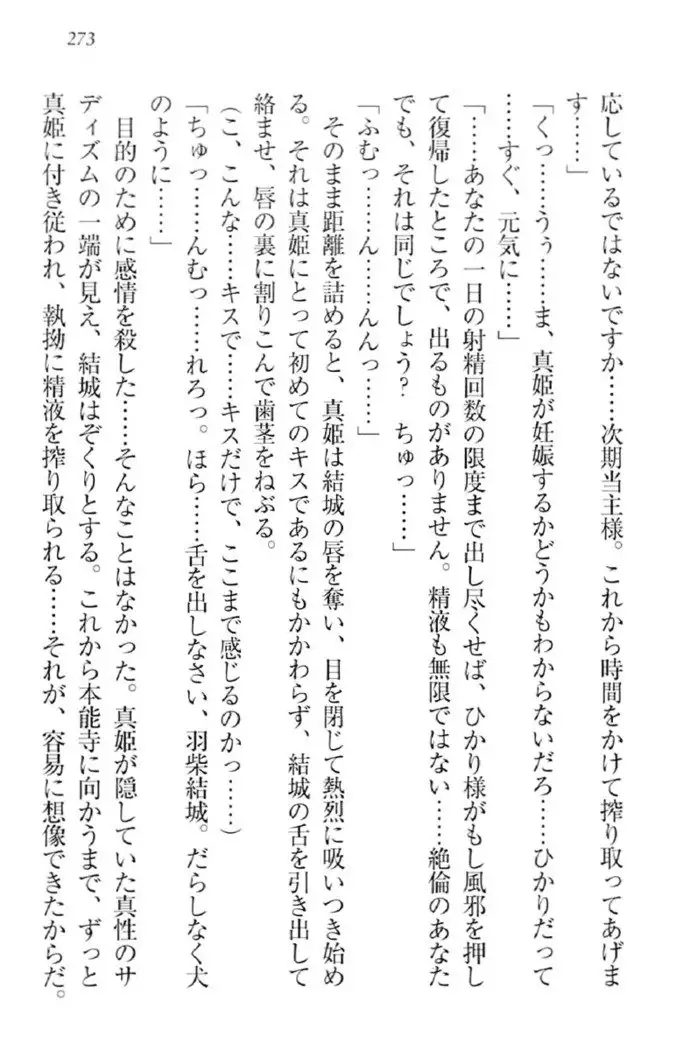 273
応しているではないですか……次期当主様。これから時間をかけて搾り取ってあげま
す……」
「くっ……うぅ……ま、真姫が妊娠するかどうかもわからないだろ……ひかりだって
……すぐ、元気に……」
「……あなたの一日の射精回数の限度まで出し尽くせば、ひかり様がもし風邪を押し
て復帰したところで、出るものがありません。精液も無限ではない……絶倫のあなた
でも、それは同じでしょう？　ちゅっ……」
「ふむっ……ん……んんっ……」
そのまま距離を詰めると、真姫は結城の唇を奪い、目を閉じて熱烈に吸いつき始め
る。それは真姫にとって初めてのキスであるにもかかわらず、結城の舌を引き出して
絡ませ、唇の裏に割りこんで歯茎をねぶる。
（こ、こんな……キスで……キスだけで、ここまで感じるのかっ……）
「ちゅっ……んむっ……れろっ。ほら……舌を出しなさい、羽柴結城。だらしなく犬
のように……」
目的のために感情を殺した……そんなことはなかった。真姫が隠していた真性のサ
ディズムの一端が見え、結城はぞくりとする。これから本能寺に向かうまで、ずっと
真姫に付き従われ、執拗に精液を搾り取られる……それが、容易に想像できたからだ。